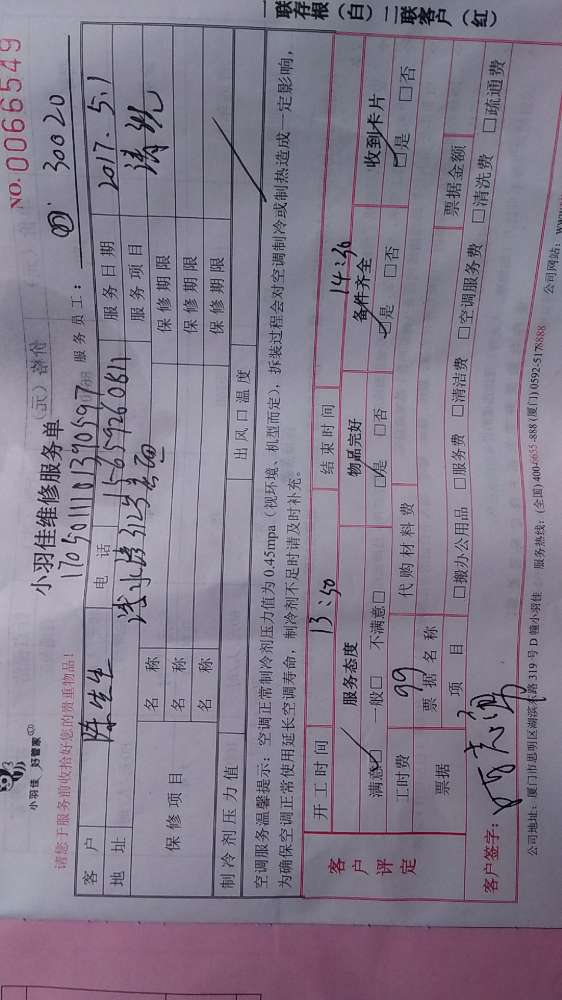 小羽佳 好管家
小羽佳维修服务单
NO.0066549
请您于服务前收拾好您的贵重物品！
服务员工： 30020
客户 陈先生 电话 15659260611 服务日期 2017.5.1
地址 服务项目 清洗
保修项目 名称 保修期限
名称 保修期限
名称 保修期限
制冷剂压力值 出风口温度
空调服务温馨提示：空调正常制冷剂压力值为0.45mpa（视环境、机型而定），拆装过程会对空调制冷或制热造成一定影响，
为确保空调正常使用延长空调寿命，制冷剂不足时请及时补充。
客户评定
开工时间 13:50 结束时间 14:36
服务态度 物品完好 备件齐全 收到卡片
满意☑ 一般□ 不满意□ ☑是 □否 ☑是 □否 ☑是 □否
工时费 99 代购材料费
票据 票据名称 票据金额
项目 □搬办公用品 □服务费 □清洁费 □空调服务费 □清洗费 □疏通费
客户签字：
公司地址：厦门市思明区湖滨东路319号D幢小羽佳 服务热线：(全国) 400-6655-888 (厦门) 0592-5178888 公司网站：www
一联存根（白） 二联客户（红）